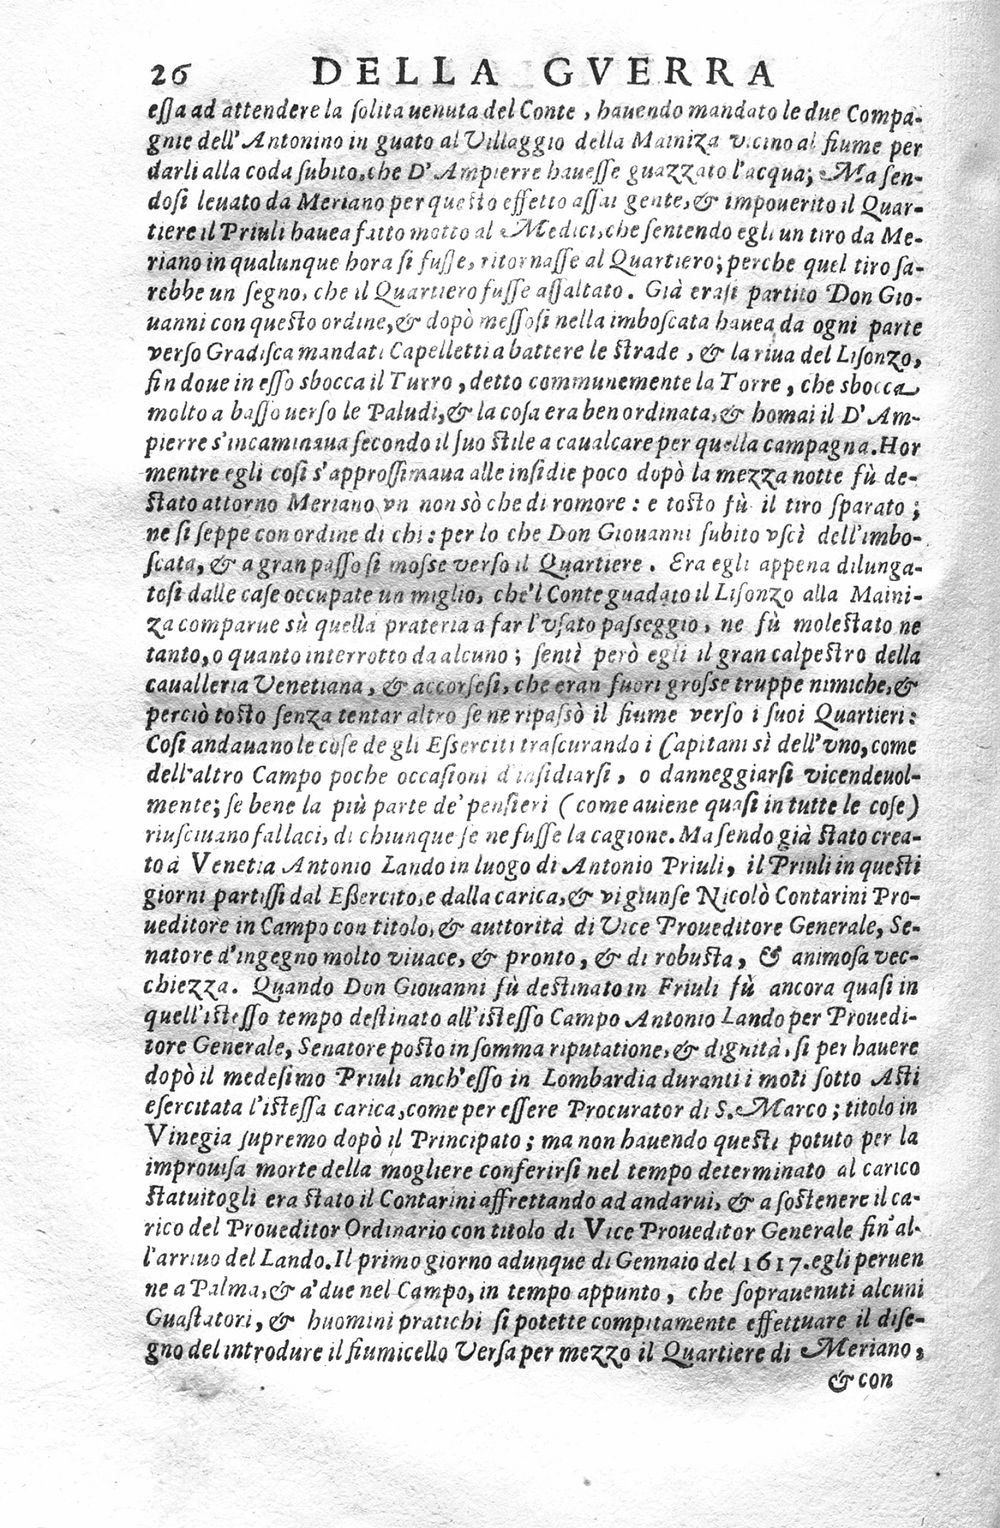 26 DELLA GVERRA
essa ad attendere la solita uenuta del Conte, hauendo mandato le due Compa-
gnie dell'Antonino in guato al Villaggio della Mainiza vicino al fiume per
darli alla coda subito, che D'Ampierre hauesse guazzato l'acqua; Ma sen-
dosi leuato da Meriano per questo effetto assai gente, & impouerito il Quar-
tiere il Priuli hauea fatto motto al Medici, che sentendo egli un tiro da Me-
riano in qualunque hora si fusse, ritornasse al Quartiero; perche quel tiro sa-
rebbe un segno, che il Quartiero fusse assaltato. Già erasi partito Don Gio-
uanni con questo ordine, & dopò messosi nella imboscata hauea da ogni parte
verso Gradisca mandati Capelletti a battere le strade, & la riua del Lisonzo,
fin doue in esso sbocca il Turro, detto communemente la Torre, che sbocca
molto a basso uerso le Paludi, & la cosa era ben ordinata, & homai il D'Am-
pierre s'incaminaua secondo il suo stile a caualcare per quella campagna. Hor
mentre egli così s'approssimaua alle insidie poco dopò la mezza notte fù de-
stato attorno Meriano vn non sò che di romore: e tosto fù il tiro sparato;
ne si seppe con ordine di chi: per lo che Don Giouanni subito vscì dell'imbo-
scata, & a gran passo si mosse verso il Quartiere. Era egli appena dilunga-
tosi dalle case occupate un miglio, che'l Conte guadato il Lisonzo alla Maini-
za comparue sù quella prateria a far l'vsato passeggio, ne fù molestato ne
tanto, o quanto interrotto da alcuno; sentì però egli il gran calpestro della
caualleria Venetiana, & accorsesi, che eran fuori grosse truppe nimiche, &
perciò tosto senza tentar altro se ne ripassò il fiume verso i suoi Quartieri:
Così andauano le cose de gli Esserciti trascurando i Capitani sì dell'vno, come
dell'altro Campo poche occasioni d'insidiarsi, o danneggiarsi vicendeuol-
mente; se bene la più parte de' pensieri (come auiene quasi in tutte le cose)
riusciuano fallaci, di chiunque se ne fusse la cagione. Ma sendo già stato crea-
to à Venetia Antonio Lando in luogo di Antonio Priuli, il Priuli in questi
giorni partissi dal Essercito, e dalla carica, & vi giunse Nicolò Contarini Pro-
ueditore in Campo con titolo, & auttorità di Vice Proueditore Generale, Se-
natore d'ingegno molto viuace, & pronto, & di robusta, & animosa vec-
chiezza. Quando Don Giouanni fù destinato in Friuli fù ancora quasi in
quell'istesso tempo destinato all'istesso Campo Antonio Lando per Prouedi-
tore Generale, Senatore posto in somma riputatione, & dignità, si per hauere
dopò il medesimo Priuli anch'esso in Lombardia duranti i moti sotto Asti
esercitata l'istessa carica, come per essere Procurator di S. Marco; titolo in
Vinegia supremo dopò il Principato; ma non hauendo questi potuto per la
improuisa morte della mogliere conferirsi nel tempo determinato al carico
statuitogli era stato il Contarini affrettando ad andarui, & a sostenere il ca-
rico del Proueditor Ordinario con titolo di Vice Proueditor Generale fin'al-
l'arriuo del Lando. Il primo giorno adunque di Gennaio del 1617. egli peruen
ne a Palma, & a' due nel Campo, in tempo appunto, che soprauenuti alcuni
Guastatori, & huomini pratichi si potette compitamente effettuare il dise-
gno del introdure il fiumicello Versa per mezzo il Quartiere di Meriano,
& con